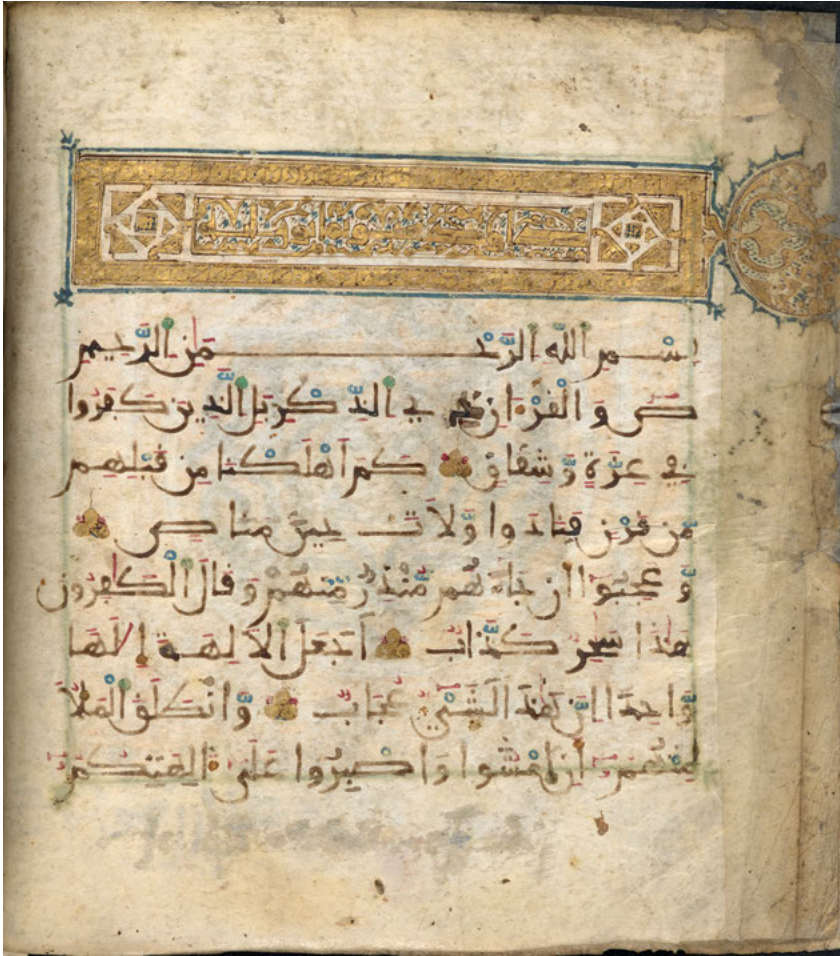 بسم الله الرحمن الرحيم
ص والقرءان ذي الذكر بل الذين كفروا
في عزة وشقاق كم اهلكنا من قبلهم
من قرن فنادوا ولات حين مناص
وعجبوا ان جاءهم منذر منهم وقال الكفرون
هذا سحر كذاب اجعل الالهة الها
واحدا ان هذا لشيء عجاب وانطلق الملأ
منهم ان امشوا واصبروا على الهتكم